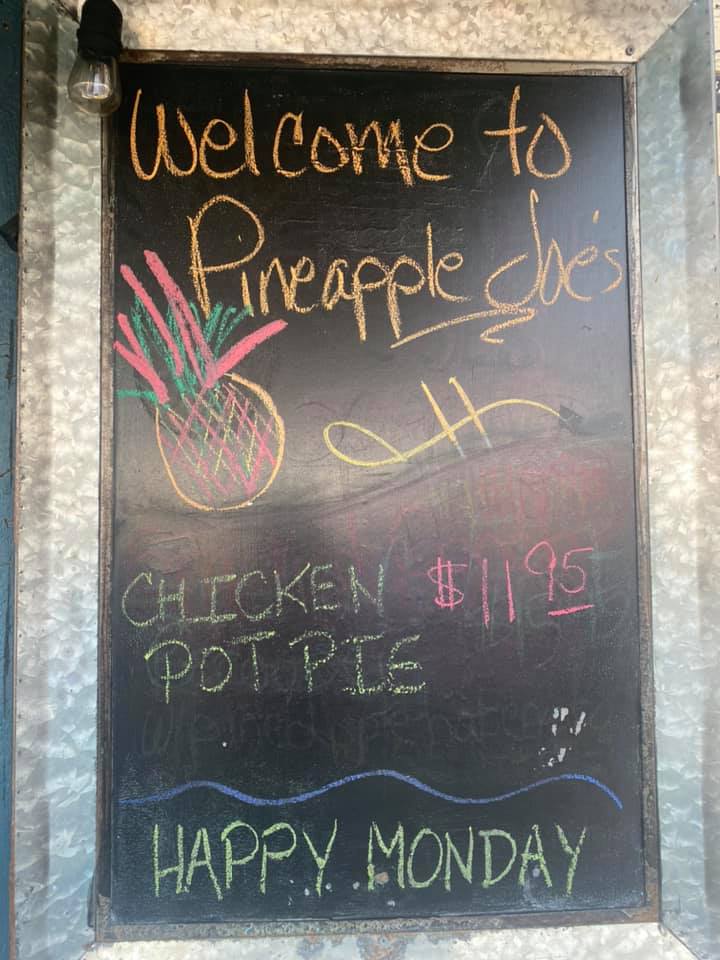 Welcome to
Pineapple Joe's
CHICKEN $11.95
POT PIE
HAPPY MONDAY